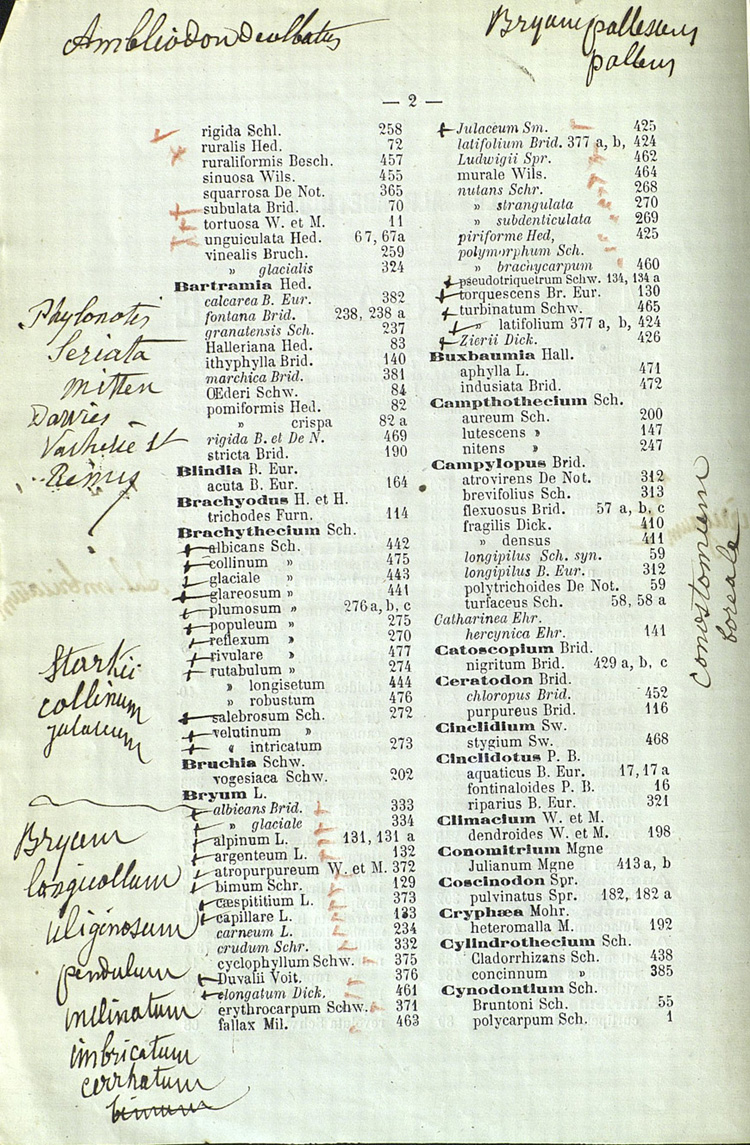 Ambliodon dealbatus
Bryum pallescens
pallens
— 2 —
rigida Schl. 258
ruralis Hed. 72
ruraliformis Besch. 457
sinuosa Wils. 455
squarrosa De Not. 365
subulata Brid. 70
tortuosa W. et M. 11
unguiculata Hed. 67, 67a
vinealis Bruch. 259
» glacialis 324
Bartramia Hed.
calcarea B. Eur. 382
fontana Brid. 238, 238 a
granatensis Sch. 237
Halleriana Hed. 83
ithyphylla Brid. 140
marchica Brid. 381
Œderi Schw. 84
pomiformis Hed. 82
» crispa 82 a
rigida B. et De N. 469
stricta Brid. 190
Blindia B. Eur.
acuta B. Eur. 164
Brachyodus H. et H.
trichodes Furn. 114
Brachythecium Sch.
albicans Sch. 442
collinum » 475
glaciale » 443
glareosum » 441
plumosum » 276 a, b, c
populeum » 275
reflexum » 270
rivulare » 477
rutabulum » 274
» longisetum 444
» robustum 476
salebrosum Sch. 272
velutinum »
» intricatum 273
Bruchia Schw.
vogesiaca Schw. 202
Bryum L.
albicans Brid. 333
» glaciale 334
alpinum L. 131, 131 a
argenteum L. 132
atropurpureum W. et M. 372
bimum Schr. 129
cæspititium L. 373
capillare L. 133
carneum L. 234
crudum Schr. 332
cyclophyllum Schw. 375
Duvalii Voit. 376
elongatum Dick. 461
erythrocarpum Schw. 371
fallax Mil. 463
Julaceum Sm. 425
latifolium Brid. 377 a, b, 424
Ludwigii Spr. 462
murale Wils. 464
nutans Schr. 268
» strangulata 270
» subdenticulata 269
piriforme Hed, 425
polymorphum Sch.
» brachycarpum 460
pseudotriquetrum Schw. 134, 134 a
torquescens Br. Eur. 130
turbinatum Schw. 465
» latifolium 377 a, b, 424
Zierii Dick. 426
Buxbaumia Hall.
aphylla L. 471
indusiata Brid. 472
Campthothecium Sch.
aureum Sch. 200
lutescens » 147
nitens » 247
Campylopus Brid.
atrovirens De Not. 312
brevifolius Sch. 313
flexuosus Brid. 57 a, b, c
fragilis Dick. 410
» densus 411
longipilus Sch. syn. 59
longipilus B. Eur. 312
polytrichoides De Not. 59
turfaceus Sch. 58, 58 a
Catharinea Ehr.
hercynica Ehr. 141
Catoscopium Brid.
nigritum Brid. 429 a, b, c
Ceratodon Brid.
chloropus Brid. 452
purpureus Brid. 116
Cinclidium Sw.
stygium Sw. 468
Cinclidotus P. B.
aquaticus B. Eur. 17, 17 a
fontinaloides P. B. 16
riparius B. Eur. 321
Climacium W. et M.
dendroides W. et M. 198
Conomitrium Mgne
Julianum Mgne 413 a, b
Coscinodon Spr.
pulvinatus Spr. 182, 182 a
Cryphæa Mohr.
heteromalla M. 192
Cylindrothecium Sch.
Cladorrhizans Sch. 438
concinnum » 385
Cynodontium Sch.
Bruntoni Sch. 55
polycarpum Sch. 1
Phylonotis
Seriata
mitten
Davies
Starkii
collinum
julaceum
Bryum
longicollum
uliginosum
pendulum
inclinatum
imbricatum
cerrhatum
bimum
Conostomum
boreale